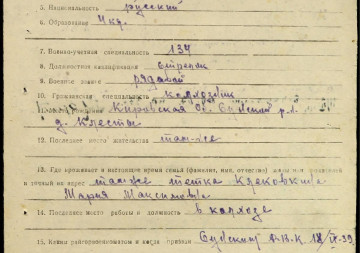 5. Национальность русский
6. Образование 4 кл.
7. Военно-учетная специальность 134
8. Должностная квалификация стрелок
9. Военное звание рядовой
10. Гражданская специальность колхозник
Кировская об.
д. Клесты
12. Последнее место жительства там-же
13. Где проживает в настоящее время семья (фамилия, имя, отчество)
и точный их адрес там же тетка Клековкина
Мария Максимовна
14. Последнее место работы и должность в колхозе
15. Каким райгорвоенкоматом и когда призван Р.В.К. 18/IX-39